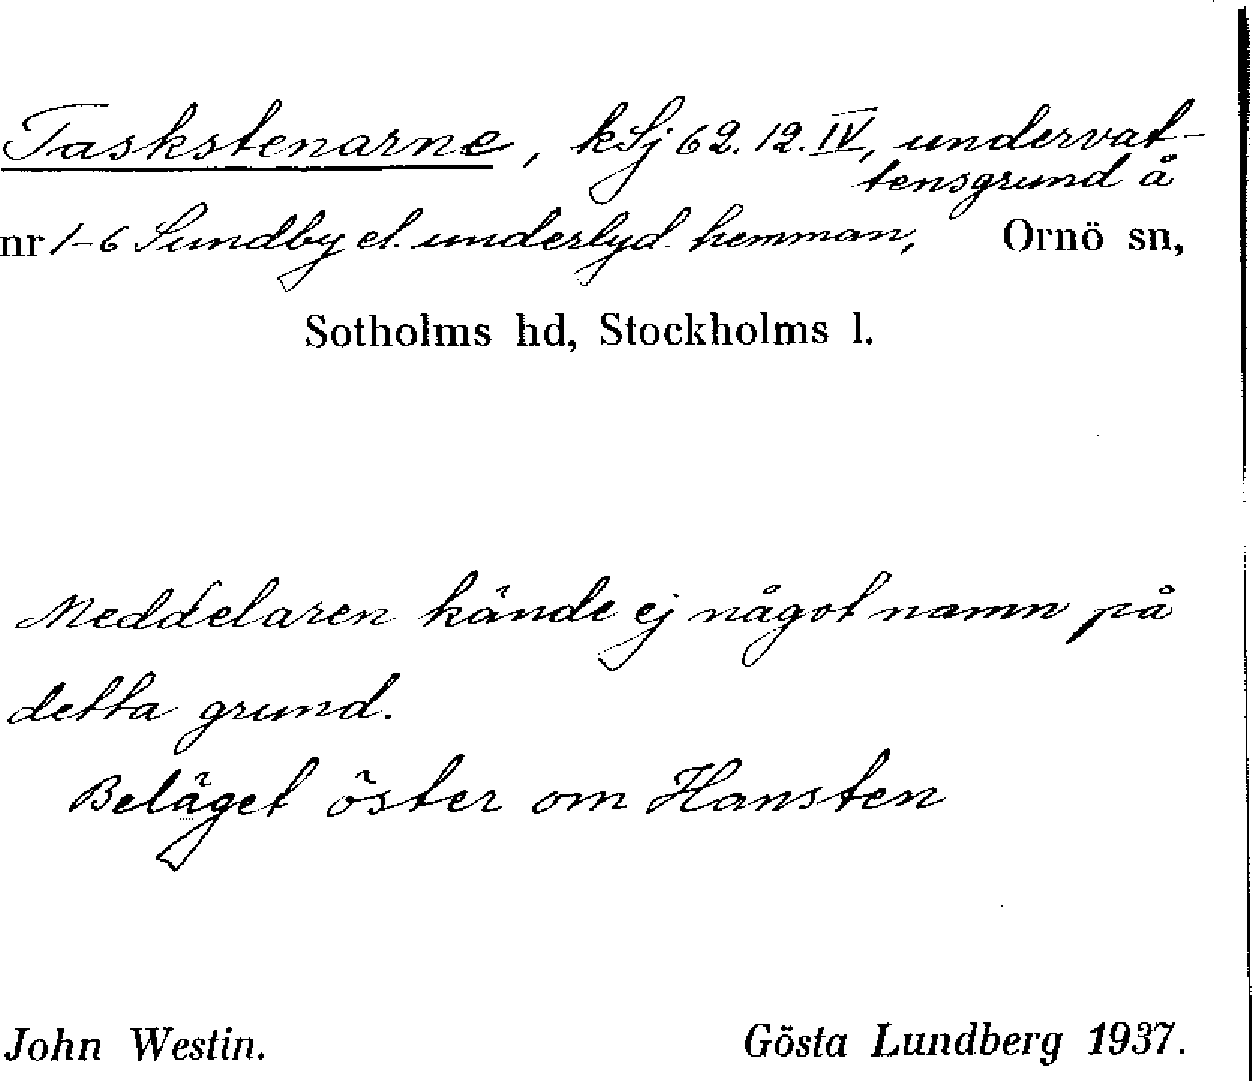 Taskstenarne, kSj 62. 12. IV, undervat-
tensgrund å
nr 1-6 Sundby el. underlyd. hemman, Ornö sn,
Sotholms hd, Stockholms l.
Meddelaren kände ej något namn på
detta grund.
Beläget öster om Hansten
John Westin. Gösta Lundberg 1937.